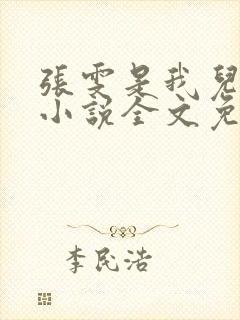 張雯是我兒
小說全文免
李民浩